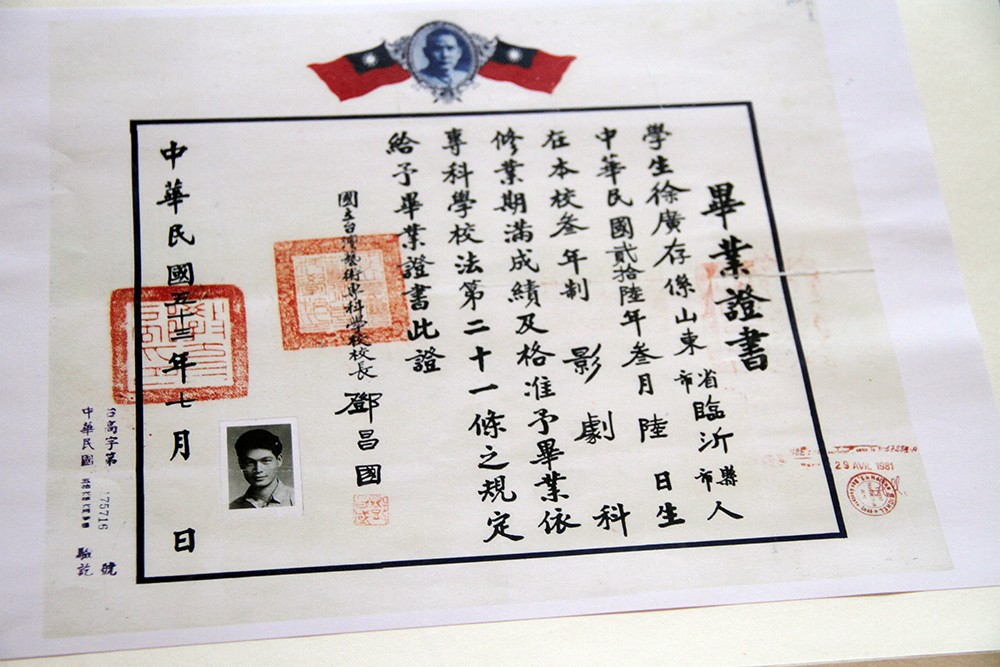 畢業證書
學生徐廣存係山東省市臨沂縣市人
中華民國貳拾陸年叁月陸日生
在本校叁年制影劇科
修業期滿成績及格准予畢業依
專科學校法第二十一條之規定
給予畢業證書此證
國立台灣藝術專科學校校長鄧昌國
中華民國五十三年七月日
台高字第75716號
中華民國
驗訖
29 AVR. 1981